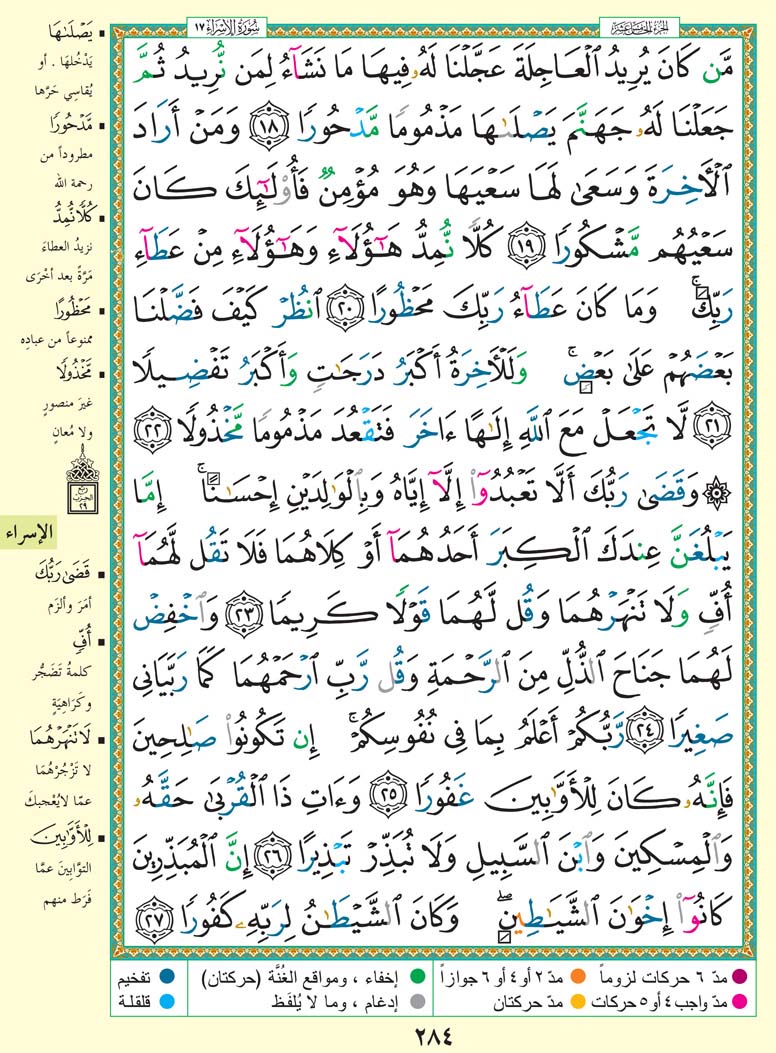 الجزء الخامس عشر
سُورَةُ الإِسْرَاء ١٧
مَّن كَانَ يُرِيدُ ٱلْعَاجِلَةَ عَجَّلْنَا لَهُۥ فِيهَا مَا نَشَآءُ لِمَن نُّرِيدُ ثُمَّ
جَعَلْنَا لَهُۥ جَهَنَّمَ يَصْلَىٰهَا مَذْمُومًا مَّدْحُورًا ١٨ وَمَنْ أَرَادَ
ٱلْأَخِرَةَ وَسَعَىٰ لَهَا سَعْيَهَا وَهُوَ مُؤْمِنٌ فَأُو۟لَٰٓئِكَ كَانَ
سَعْيُهُم مَّشْكُورًا ١٩ كُلًّا نُّمِدُّ هَٰٓؤُلَآءِ وَهَٰٓؤُلَآءِ مِنْ عَطَآءِ
رَبِّكَ ۚ وَمَا كَانَ عَطَآءُ رَبِّكَ مَحْظُورًا ٢٠ ٱنظُرْ كَيْفَ فَضَّلْنَا
بَعْضَهُمْ عَلَىٰ بَعْضٍ ۚ وَلَلْأَخِرَةُ أَكْبَرُ دَرَجَٰتٍ وَأَكْبَرُ تَفْضِيلًا
٢١ لَّا تَجْعَلْ مَعَ ٱللَّهِ إِلَٰهًا ءَاخَرَ فَتَقْعُدَ مَذْمُومًا مَّخْذُولًا ٢٢
۞ وَقَضَىٰ رَبُّكَ أَلَّا تَعْبُدُوٓا۟ إِلَّآ إِيَّاهُ وَبِٱلْوَٰلِدَيْنِ إِحْسَٰنًا ۚ إِمَّا
يَبْلُغَنَّ عِندَكَ ٱلْكِبَرَ أَحَدُهُمَآ أَوْ كِلَاهُمَا فَلَا تَقُل لَّهُمَآ
أُفٍّ وَلَا تَنْهَرْهُمَا وَقُل لَّهُمَا قَوْلًا كَرِيمًا ٢٣ وَٱخْفِضْ
لَهُمَا جَنَاحَ ٱلذُّلِّ مِنَ ٱلرَّحْمَةِ وَقُل رَّبِّ ٱرْحَمْهُمَا كَمَا رَبَّيَانِى
صَغِيرًا ٢٤ رَّبُّكُمْ أَعْلَمُ بِمَا فِى نُفُوسِكُمْ ۚ إِن تَكُونُوا۟ صَٰلِحِينَ
فَإِنَّهُۥ كَانَ لِلْأَوَّٰبِينَ غَفُورًا ٢٥ وَءَاتِ ذَا ٱلْقُرْبَىٰ حَقَّهُۥ
وَٱلْمِسْكِينَ وَٱبْنَ ٱلسَّبِيلِ وَلَا تُبَذِّرْ تَبْذِيرًا ٢٦ إِنَّ ٱلْمُبَذِّرِينَ
كَانُوٓا۟ إِخْوَٰنَ ٱلشَّيَٰطِينِ ۖ وَكَانَ ٱلشَّيْطَٰنُ لِرَبِّهِۦ كَفُورًا ٢٧
▪ يَصْلَىٰهَا
يَدْخُلهَا . أو
يُقاسِي حَرَّها
▪ مَّدْحُورًا
مطروداً من
رحمة الله
▪ كُلًّا نُّمِدُّ
نزيدُ العطاءَ
مَرَّةً بعد أخْرَى
▪ مَحْظُورًا
ممنوعاً من عبادِه
▪ مَّخْذُولًا
غيرَ منصورٍ
ولا مُعانٍ
ربع
الحزب
٢٩
الإسراء
▪ قَضَىٰ رَبُّكَ
أمَرَ وألزَم
▪ أُفٍّ
كلمةُ تَضَجُّر
وكَرَاهِيَةٍ
▪ لَا تَنْهَرْهُمَا
لا تَزْجُرْهُمَا
عمّا لايُعْجبكَ
▪ لِلْأَوَّٰبِينَ
التوَّابِينَ عمَّا
فَرَط منهم
مدّ ٦ حركات لزوماً
مدّ ٢ أو ٤ أو ٦ جوازاً
إخفاء ، ومواقع الغُنَّة (حركتان)
تفخيم
مدّ واجب ٤ أو ٥ حركات
مدّ حركتان
إدغام ، وما لا يُلفَظ
قلقلة
٢٨٤